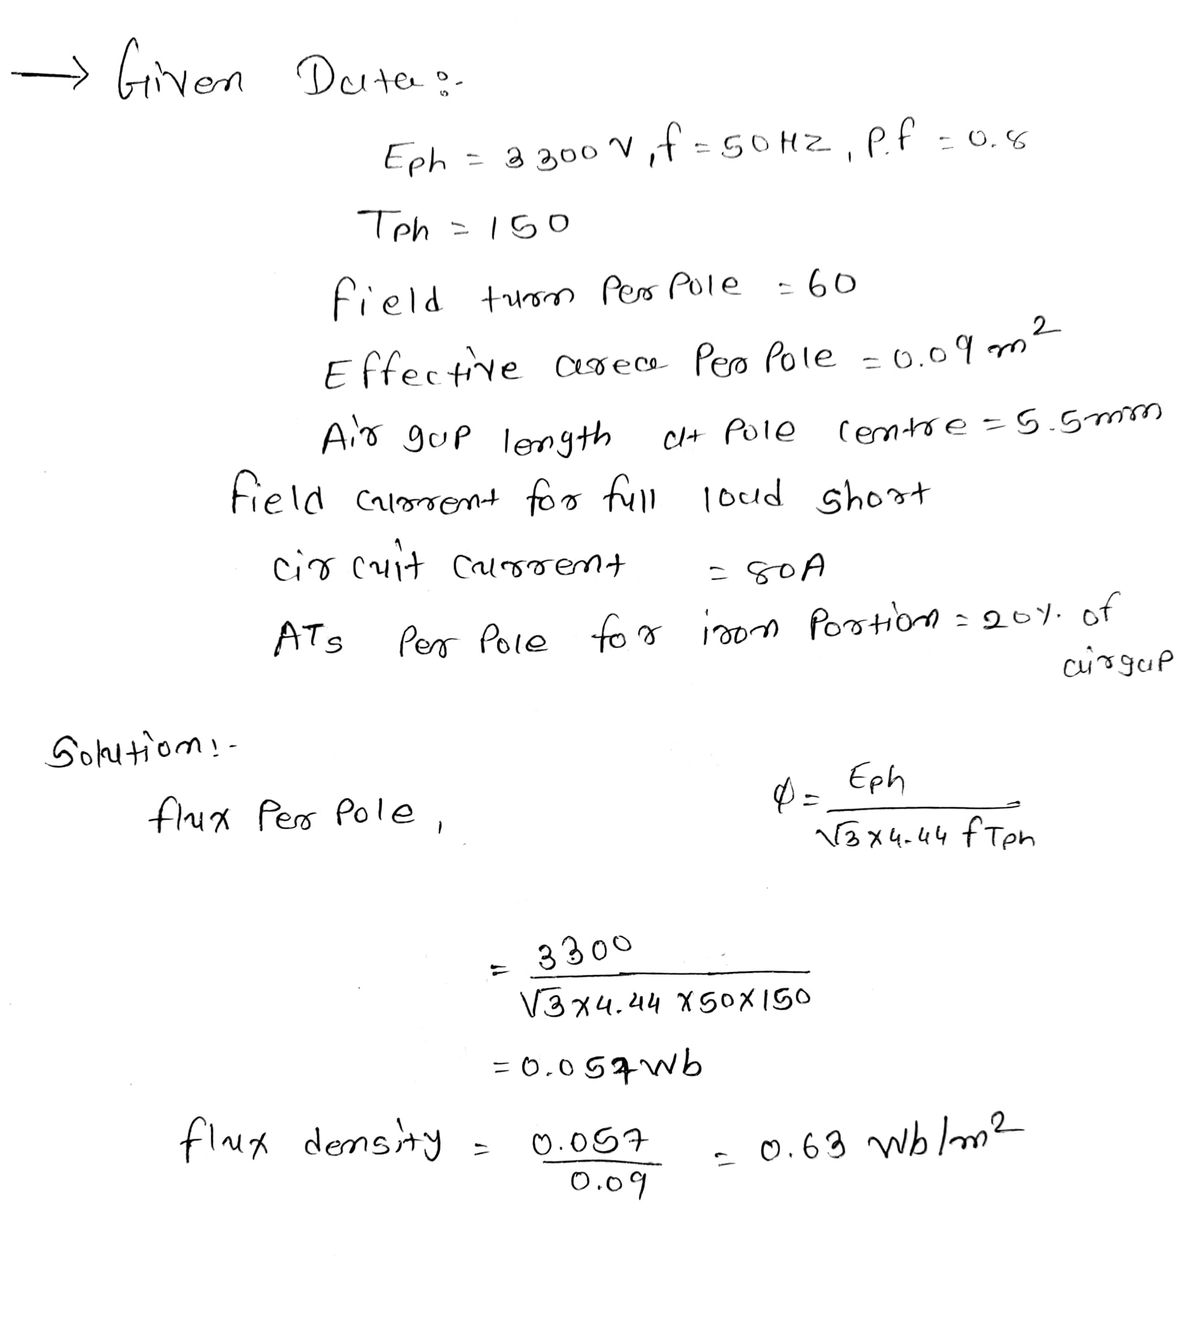 → Given Data:-
Eph = 3300 V, f = 50 HZ, P.f = 0.8
Tph = 150
field turn Per Pole = 60
Effective area Per Pole = 0.09 m²
Air gap length at Pole centre = 5.5mm
field current for full load short
circuit current = 80A
ATs Per Pole for iron Portion = 20% of
airgap
Solution:-
flux Per Pole, φ = Eph / √3 × 4.44 f Tph
= 3300 / √3 × 4.44 × 50 × 150
= 0.057 Wb
flux density = 0.057 / 0.09 = 0.63 Wb/m²